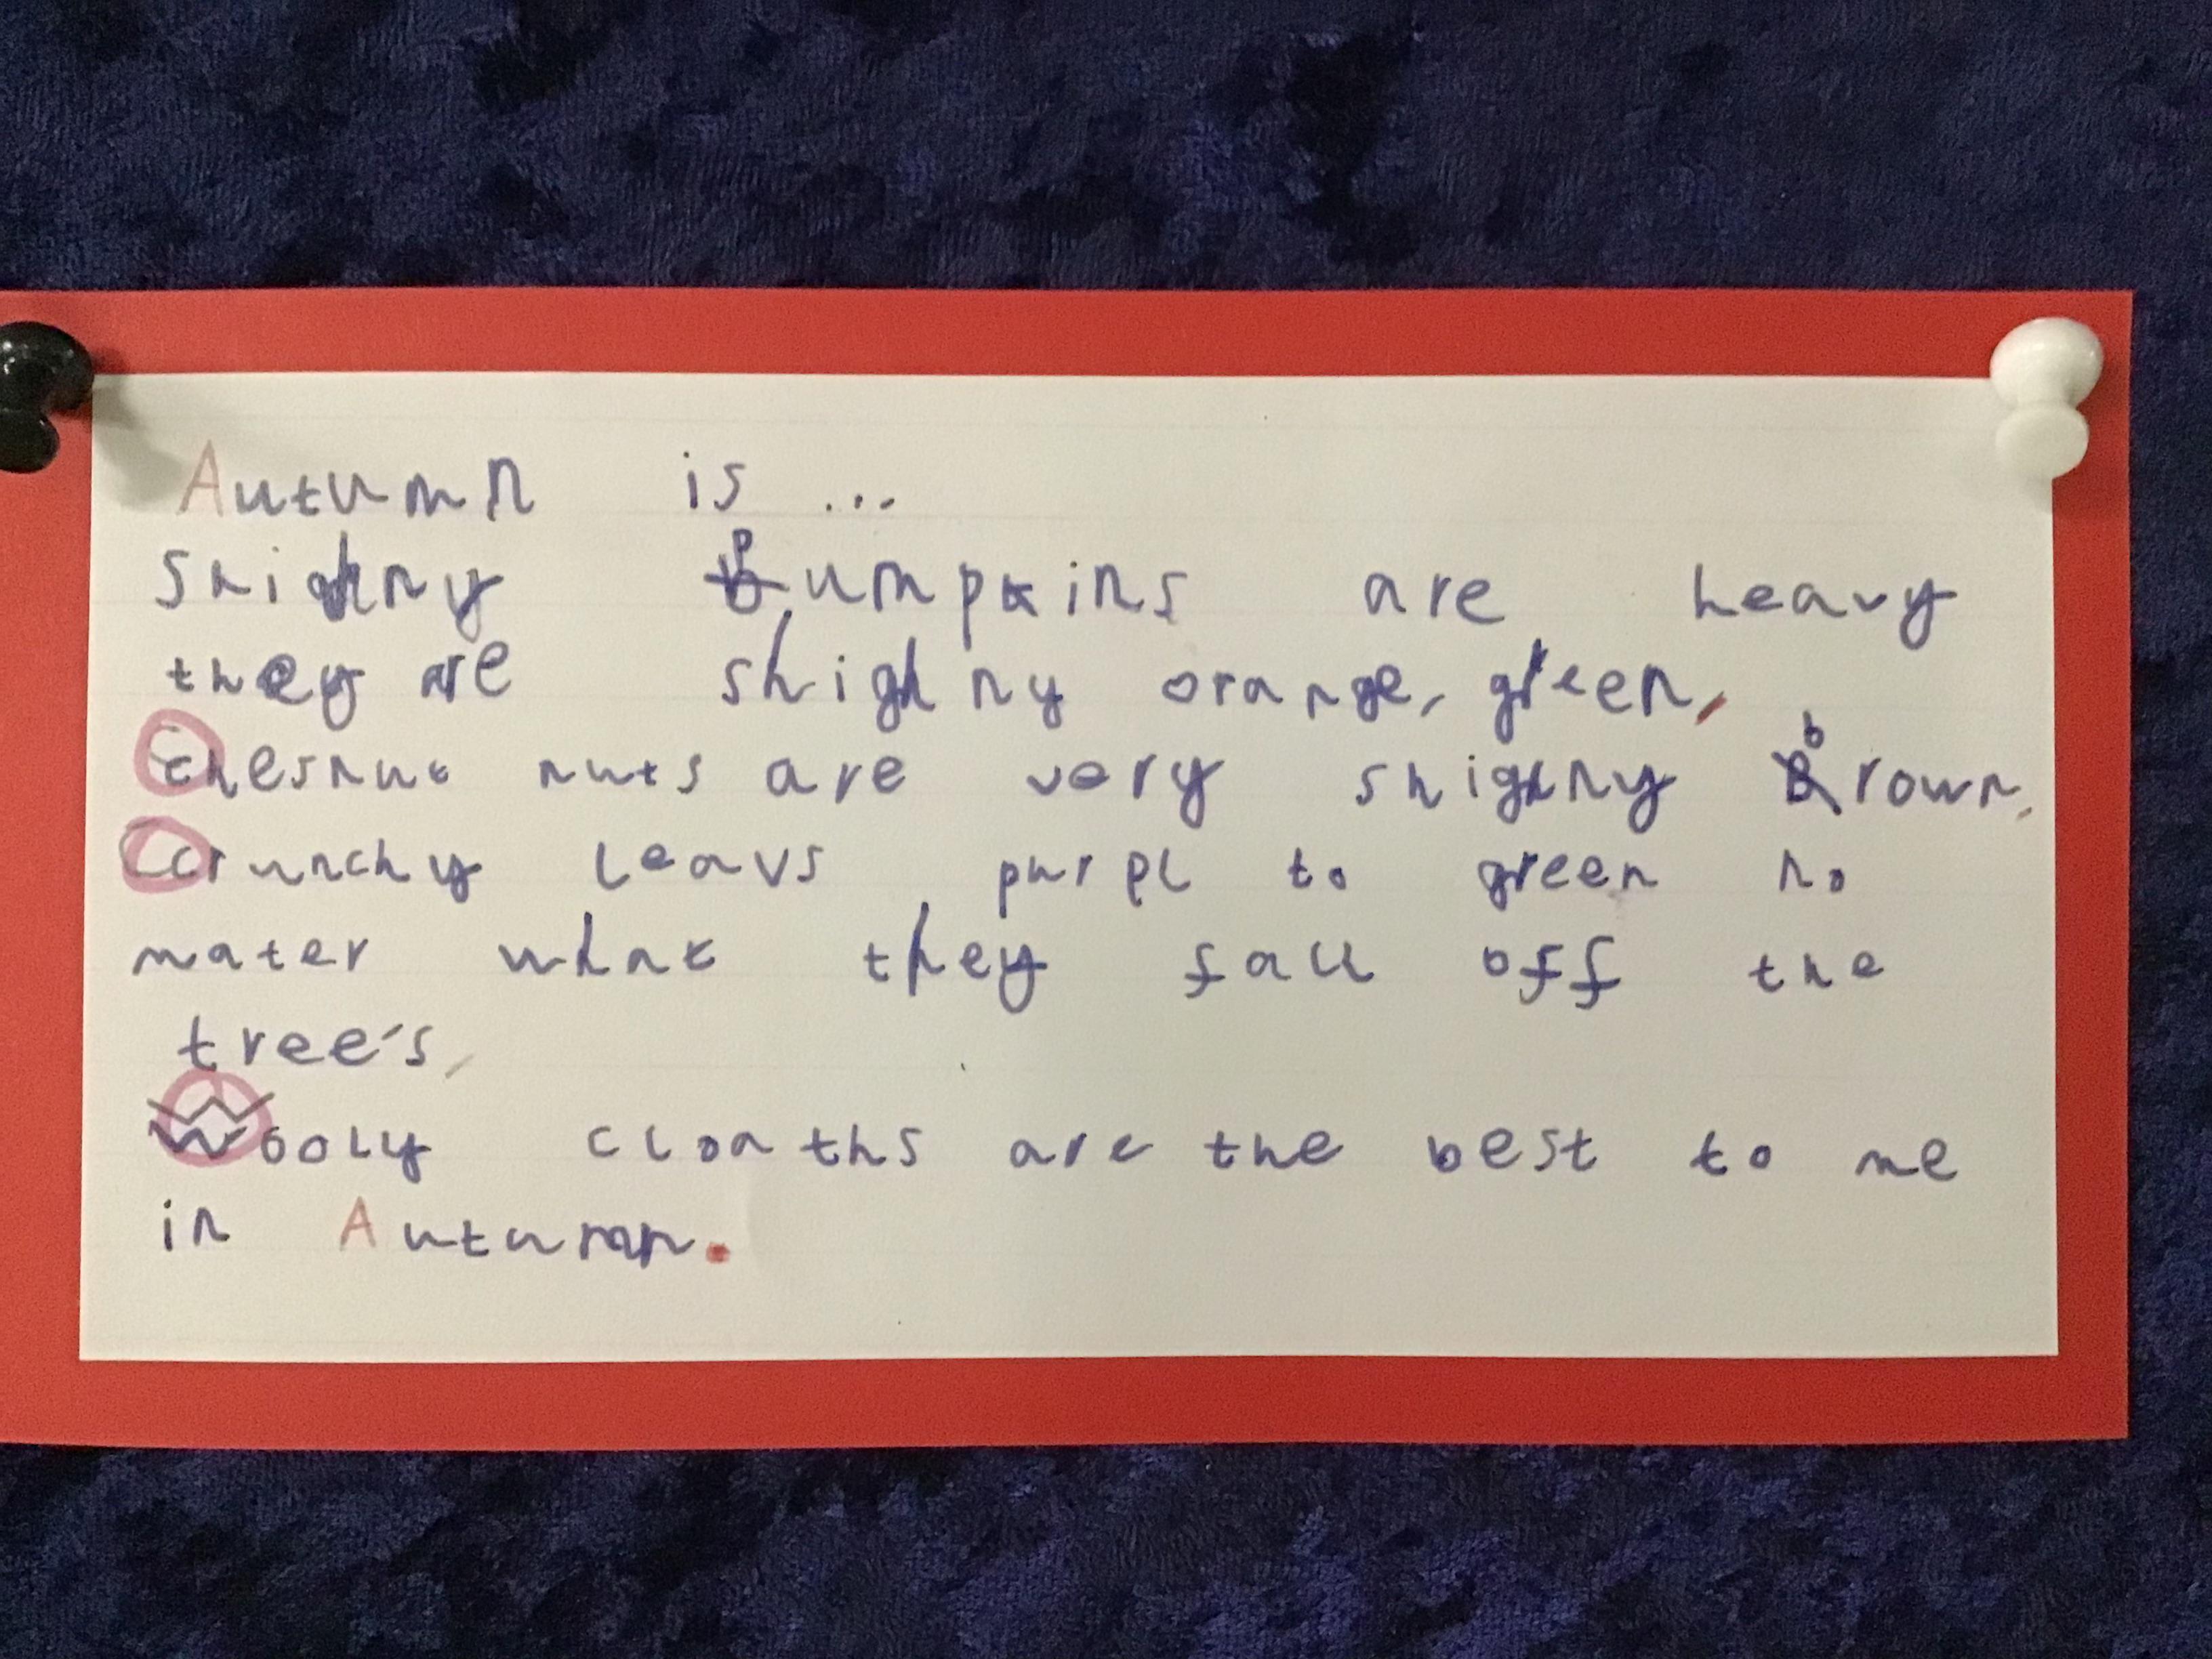 Autumn is ...
Shighny pumpkins are heavy
they are shighny orange, green,
Chesnut nuts are very shighny brown,
Crunchy leavs purpl to green no
mater what they fall off the
tree's,
Wooly cloaths are the best to me
in Autumn.